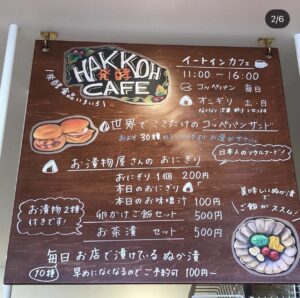 2/6
HAKKOH
発酵
CAFE
発酵食品いろいろ
イートインカフェ
11:00 ~ 16:00
コッペパン 毎日
オニギリ 土・日
世界でここだけのコッペパンサンド
およそ30種の
お漬物屋さんのおにぎり
日本人のソウルフード!
おにぎり1個 200円
本日のおにぎり
本日のお味噌汁 100円
卵かけご飯セット 500円
お茶漬セット 500円
お漬物2種
付きです!
ご飯がススム
毎日お店で漬けているぬか漬
10種
早めになくなるのでご予約可 100円~